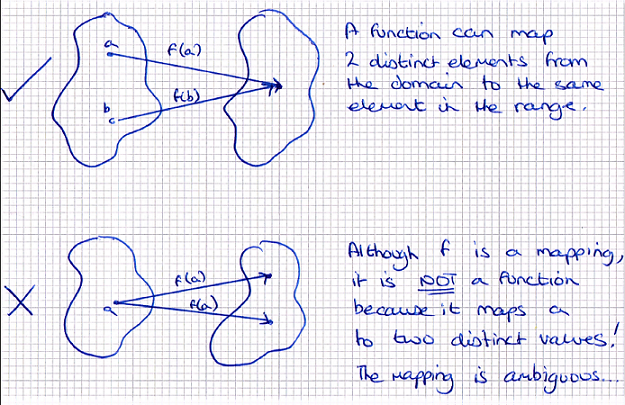 a
f(a)
b
f(b)
A function can map
2 distinct elements from
the domain to the same
element in the range.
a
f(a)
f(a)
Although f is a mapping,
it is NOT a function
because it maps a
to two distinct values!
The mapping is ambiguous...